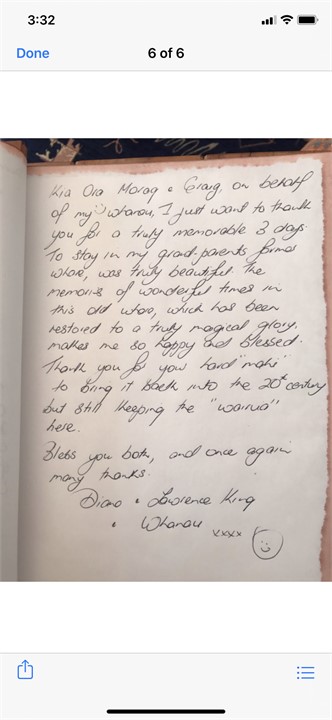 3:32
Done
6 of 6
Kia Ora Morag & Craig, on behalf
of my whanau, I just want to thank
you for a truly memorable 3 days.
To stay in my grand-parents former
whare, was truly beautiful. The
memories of wonderful times in
this old whare, which has been
restored to a truly magical glory,
makes me so happy and blessed.
Thank you for your hard "mahi"
to bring it back into the 20th century
but still keeping the "wairua"
here.
Bless you both, and once again
many thanks.
Diane & Lawrence King
& Whanau
xxxx